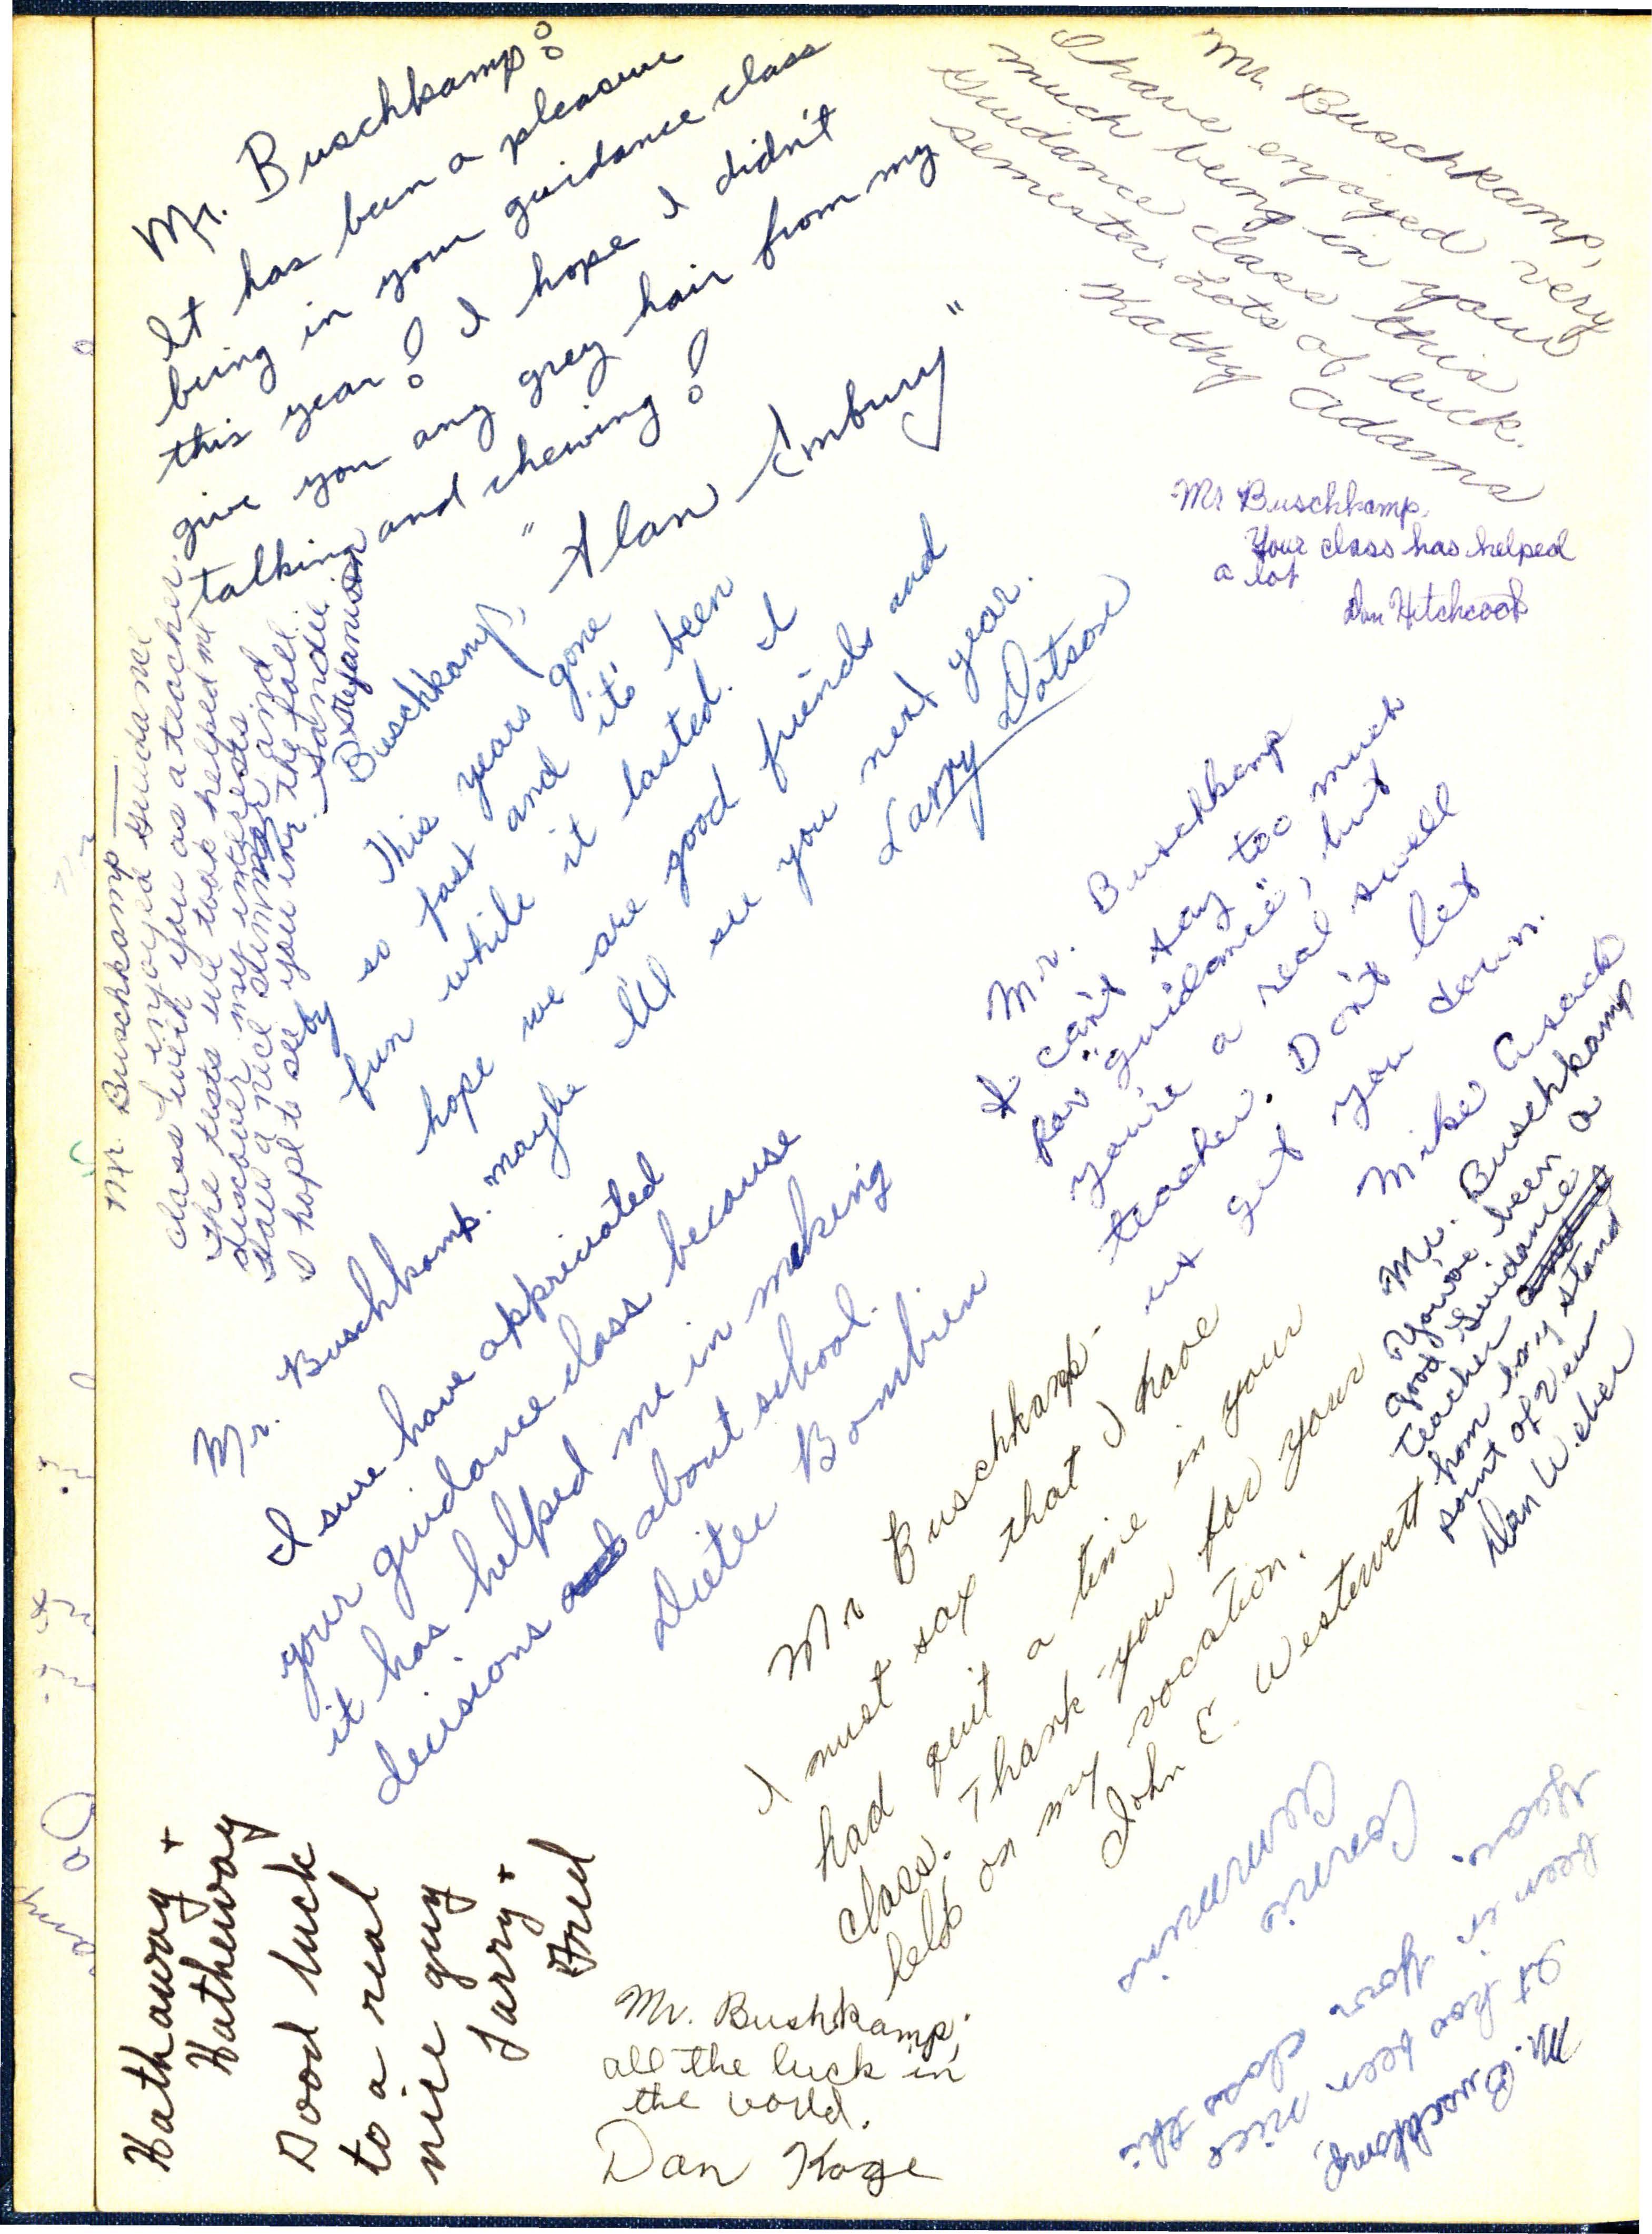 Mr. Buschkamp:
It has been a pleasure
being in your guidance class
this year! I hope I didn't
give you any grey hair from my
talking and chewing!
"Alan Embury"
Mr. Buschkamp,
I have enjoyed very
much being in your
Guidance class this
semester. Lots of luck.
Kathy Adams
Mr Buschkamp,
Your class has helped
a lot
Don Hitchcock
Mr. Buschkamp
I enjoyed guidance
class with you as a teacher.
The tests we took helped me
discover my interests.
Have a nice summer and
I hope to see you in the fall.
Sandie
Stefanisin
Buschkamp,
This years gone
by so fast and it's been
fun while it lasted. I
hope we are good friends and
maybe I'll see you next year.
Larry Dotson
Mr. Buschkamp
I can't say too much
for "guidance", but
you're a real swell
teacher. Don't let
us get you down.
Mike Cusack
Mr. Buschkamp
You've been a
good Guidance
teacher
from my stand
point of veiw
Dan Weber
Mr. Buschkamp.
I sure have appriciated
your guidance class because
it has helped me in making
decisions about school.
Dieter Bombien
Mr Buschkamp-
I must say that I have
had quit a time in your
class. Thank-you for your
help on my vocation.
John E. Westervett
Hathaway +
Hatheway
Good luck
to a real
nice guy
Larry +
Fred
Mr. Bushkamp,
all the luck in
the world.
Dan Koge
Mr. Buschkamp,
It has been nice
been in your class this
year.
Connie